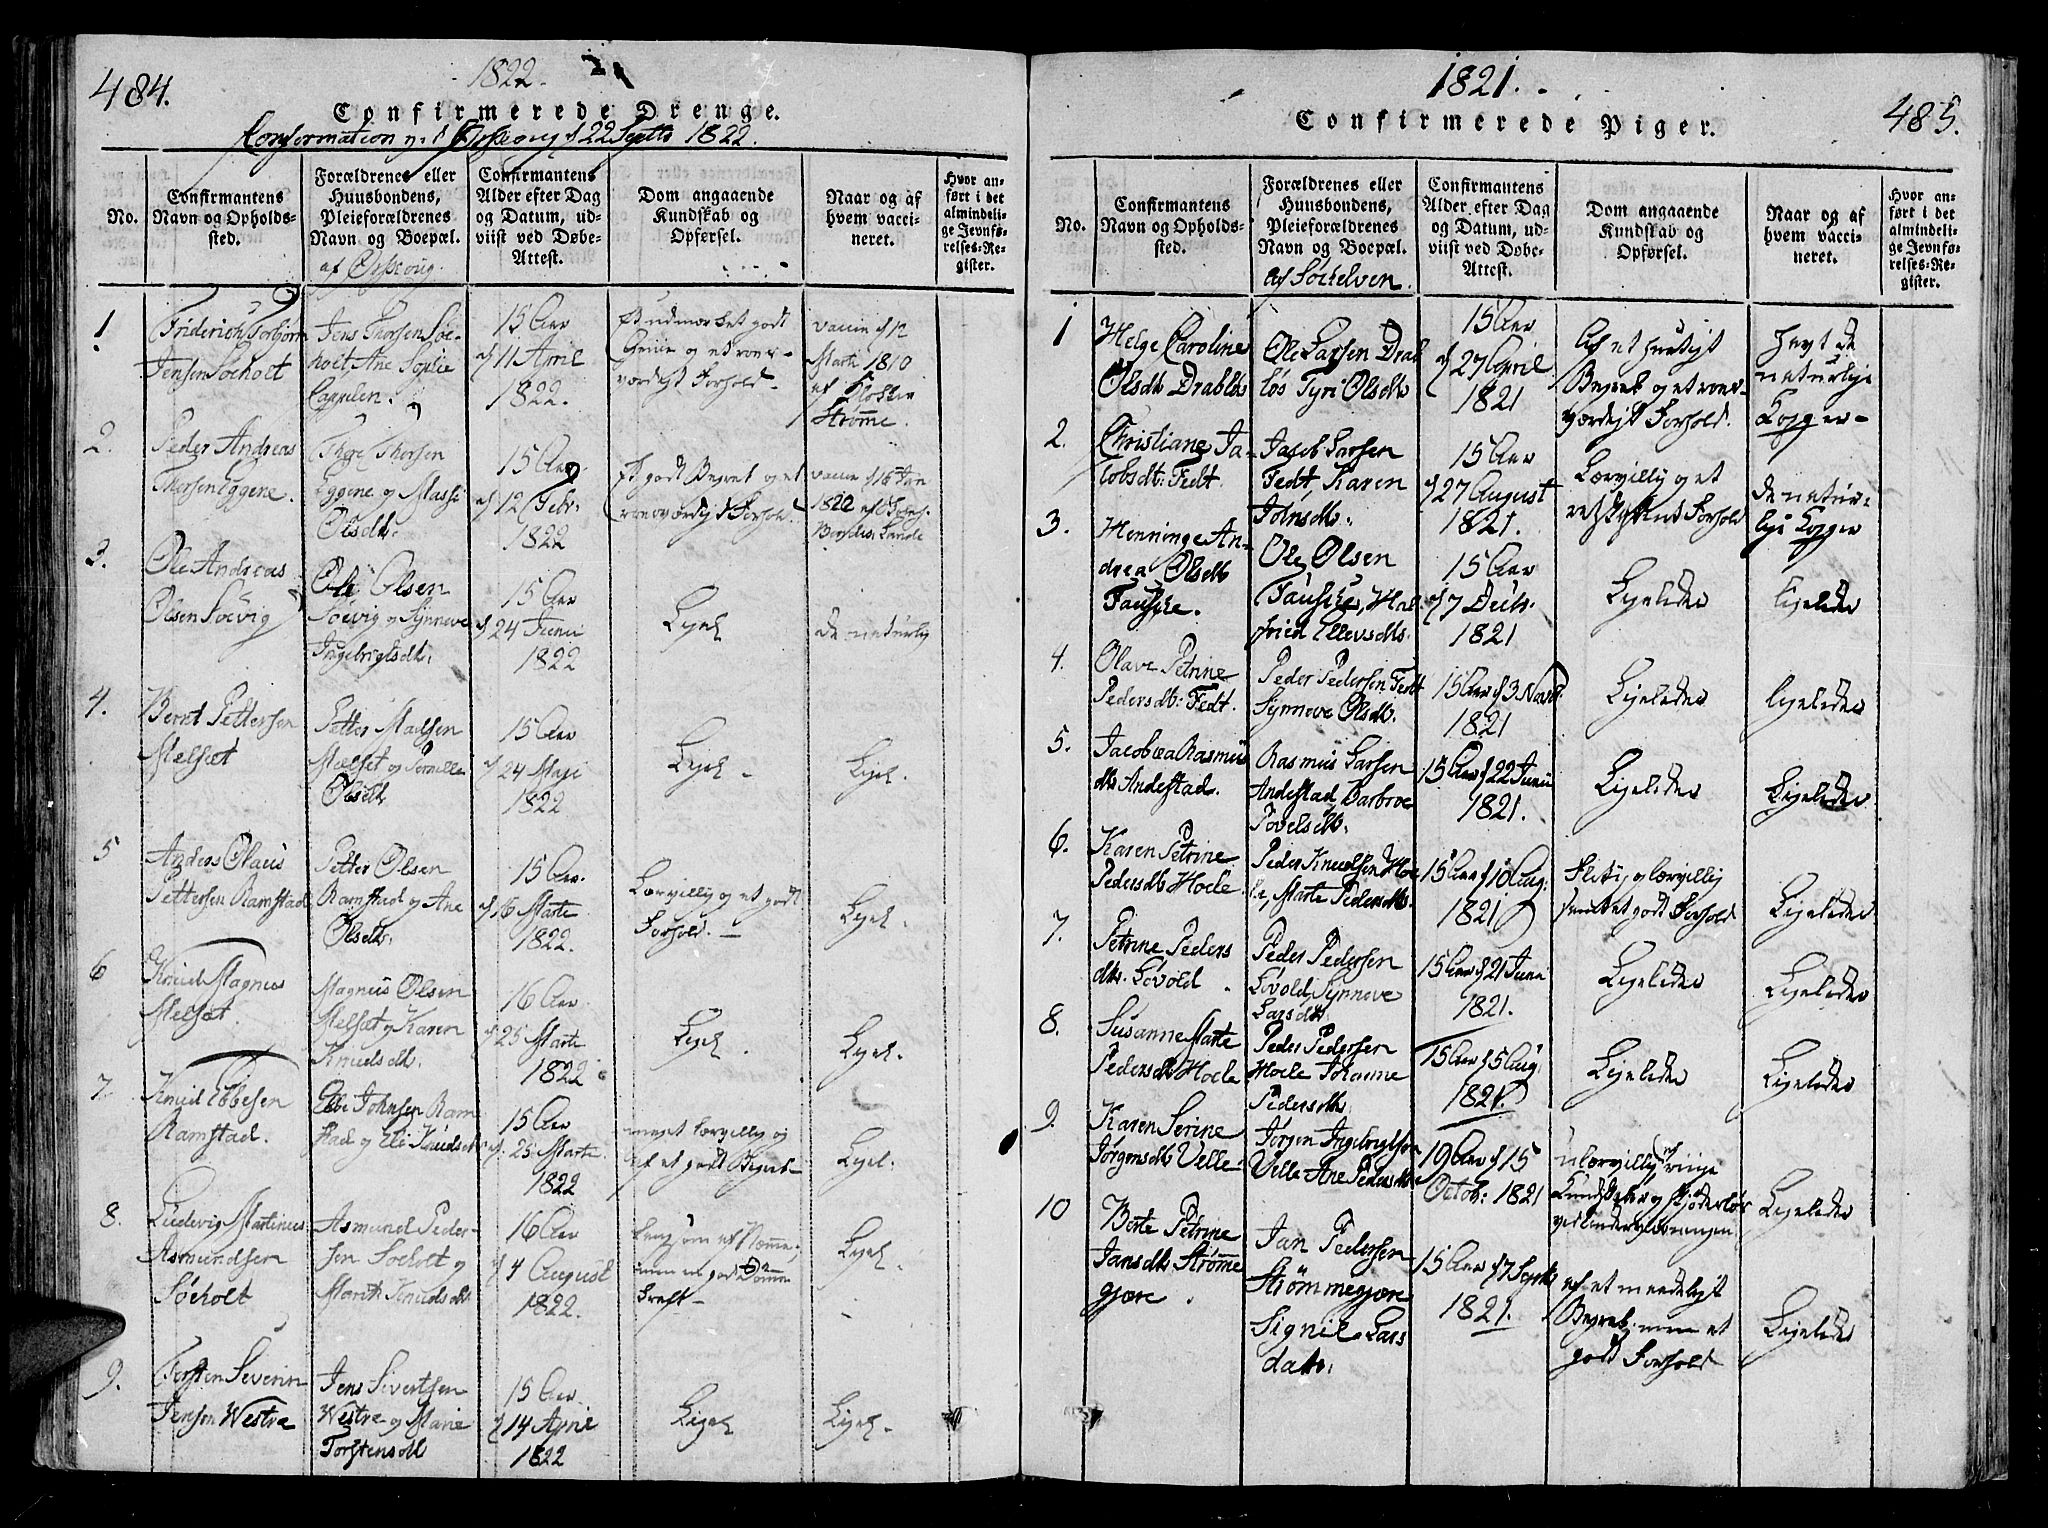 484.
1822.
Confirmerede Drenge.
Konfirmation 22 Septb 1822.
No.
Confirmantens
Navn og Opholds-
sted.
Forældrenes eller
Huusbondens,
Pleieforældrenes
Navn og Boepæl.
af Ørskoug.
Confirmantens
Alder efter Dag
og Datum, ud-
viist ved Døbe-
Attest.
Dom angaaende
Kundskab og
Opførsel.
Naar og af
hvem vacci-
neret.
Hvor an-
ført i det
almindeli-
ge Jevnfø-
relses-Re-
gister.
1
Friderich Torbjørn
Jensen Søeholt
Jens Thorsen Søe-
holt, Ane Sophie
Cappelen.
15 Aar
11 April
1822.
Et udmærket godt
og et roes-
værdigt Forhold.
vaccin d 12
Marts 1810
af Klokker
Strømme.
2.
Peder Andreas
Thorsen Eggene.
Thorsen
Eggene og Masse
Olsdtr.
15 Aar
12 Febr.
1822
Et godt Begreb og et
roesværdigt Forhold.
vaccin d 16 Jan
3.
Ole Andreas
Olsen Søevig
Ole Olsen
Søevig og Synneve
Ingebrigtsdtr.
15 Aar
24 Junii
1822
Ligel.
de naturlig
4.
Bernt Pettersen
Melsæt
Petter Madsen
Melsæt og Pernille
Olsdtr
15 Aar
24 Maji
1822
Ligel.
Ligel.
5
Anders Olaus
Pettersen Ramstad
Petter Olsen
Ramstad og Ane
Olsdtr.
15 Aar.
16 Marts
1822.
Lærvillig og et godt
Forhold.
Ligel.
6
Knud Magnus
Melsæt.
Magnus Olsen
Melsæt og Karen
Knudsdtr.
16 Aar
25 Marts
1822
Ligel.
Ligel.
7
Knud Ebbesen
Ramstad.
Ebbe Johnsen Ram
stad og Eli Knudsd
15 Aar
25 Marts
1822
meget lærvillig og
af et godt Begreb
Ligel.
8.
Ludevig Martinus
Asmundsen
Søeholt
Asmund Peder-
sen Søeholt og
Marit Knudsdtr
16 Aar
4 August
1822.
Ligel.
9.
Torsten Severin
Jensen Westre
Jens Sivertsen
Westre og Marie
Torstensdtr
15 Aar
14 April
1822
Ligel
Ligel.
1821.
Confirmerede Piger.
485.
No.
Confirmantens
Navn og Opholds-
sted.
Forældrenes eller
Huusbondens,
Pleieforældrenes
Navn og Boepæl.
af Søekelven.
Confirmantens
Alder efter Dag
og Datum, ud-
viist ved Døbe-
Attest.
Dom angaaende
Kundskab og
Opførsel.
Naar og af
hvem vacci-
neret.
Hvor an-
ført i det
almindeli-
ge Jevnfø-
relses-Re-
gister.
1
Helge Caroline
Olsdtr Drabløs
Ole Larsen Drab
løs Tyri Olsdtr
15 Aar
27 April
1821
Af et hurtigt
Begreb og et roes-
værdigt Forhold.
havt de
naturlige
Kopper
2.
Christiane Ja-
kobsdt: Fedt.
Jacob Larsen
Fedt Karen
Johnsdtr.
15 Aar
27 August
1821.
Lærvillig og et
retskaffent Forhold
de natur-
lige Kopper
3.
Henninge An-
drea Olsdtr
Fauske.
Ole Olsen
Fauske, Hal
frid Ellevsdtr.
15 Aar
7 Decbr.
1821
Ligeledes
ligeledes
4.
Olave Petrine
Pedersdt: Fedt.
Peder Pedersen Fedt
Synneve Olsdtr.
15 Aar d 3 Novb
1821
Ligeledes
ligeledes
5.
Jacobea Rasmus
dtr Andestad.
Rasmus Larsen
Andestad, Barbroe
Povelsdtr.
15 Aar d 22 Junii
1821.
Ligeledes
Ligeledes
6.
Karen Petrine
Pedersdtr Hoele.
Peder Knudsen Hoe
le, Marte Pedersdtr.
15 Aar d 10 Aug:
1821
Flittig, og lærvillig
samt et godt Forhold
Ligeledes
7.
Petrine Peders
dtr. Løvold
Peder Pedersen
Løvold, Synneve
Larsdtr.
15 Aar d 21 Junii
1821.
Ligeledes
Ligeledes
8.
Susanne Marte
Pedersdtr Hoele
Peder Pedersen
Hoele Johanne
Pedersdtr.
15 Aar d 5 Aug:
1821.
Ligeledes
Ligeledes
9.
Karen Serine
Jørgensdtr Velle.
Jørgen Ingebrigtsen
Velle Ane Pedersdtr
19 Aar d 15
Octob: 1821
ulærvillig, ringe
Kundskaber og skjødesløs
ved Underviisningen
Ligeledes
10
Berte Petrine
Jansdtr Strømme
gjære
Jan Pedersen
Strömmegjære
Signil Lars
datr.
15 Aar d 7 Septb
1821.
af et maadeligt
Begreb, men et
godt Forhold
Ligeledes